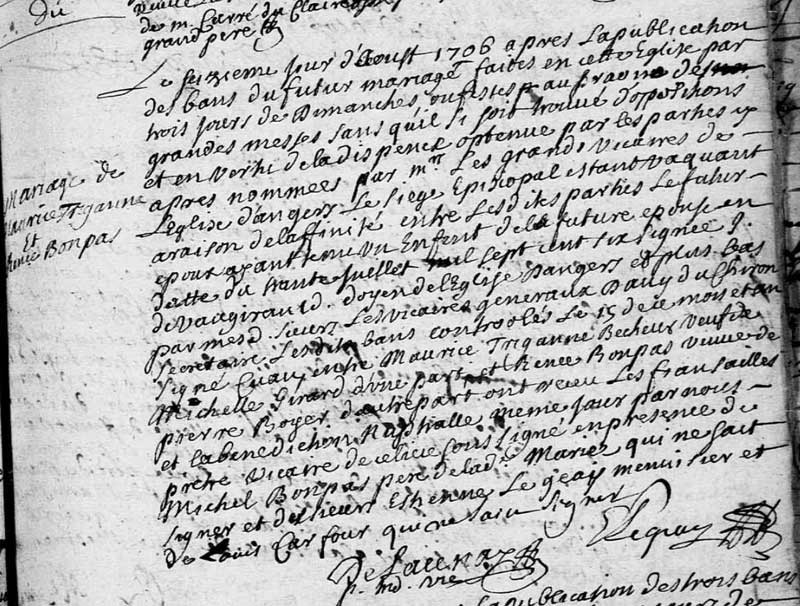 du
de m. Carré du Claire
grand pere
Le seizieme jour d'Aoust 1706 apres la publication
des bans du futur mariage faites en cette Eglise par
trois jours de Dimanches ou festes au prosne des
grandes messes sans qu'il si soit trouvé d'opositions
et en vertu de la dispence obtenue par les parties cy
apres nommées par mrs Les grands Vicaires de
L'eglise d'angers Le siege Episcopal estant vaquant
a raison de laffinité entre Lesdites parties Le futur
epoux ayant tenu un Enfent de la future epouse en
datte du trante Juellet mil sept cent six signée J.
de Vaugirauld. doyen de l'Eglise d'angers et plus bas
par mesd. sieurs Les Vicaires generaux Bauy du Chiron
secretaire Lesdits bans controolés Le 15 de ce mois et an
signé Cuau entre Maurice Triganne Becheur Veuf de
Michelle Girard d'une part et Renee Bonpas veuve de
pierre Boyer d'autre part ont receu Les fiansailles
et la benediction Nuptialle meme jour par nous
pretre vicaire de ce lieu soussigné en presence de
Michel Bonpas pere de lad. Mariée qui ne sait
signer et des sieurs Estienne Le geay menuisier et
de Louis Carfour qui ne sait signer
Mariage de
Maurice Triganne
Et
Renee Bonpas
De Launay
p. ind. vic
E Legeay
la publication des trois bans